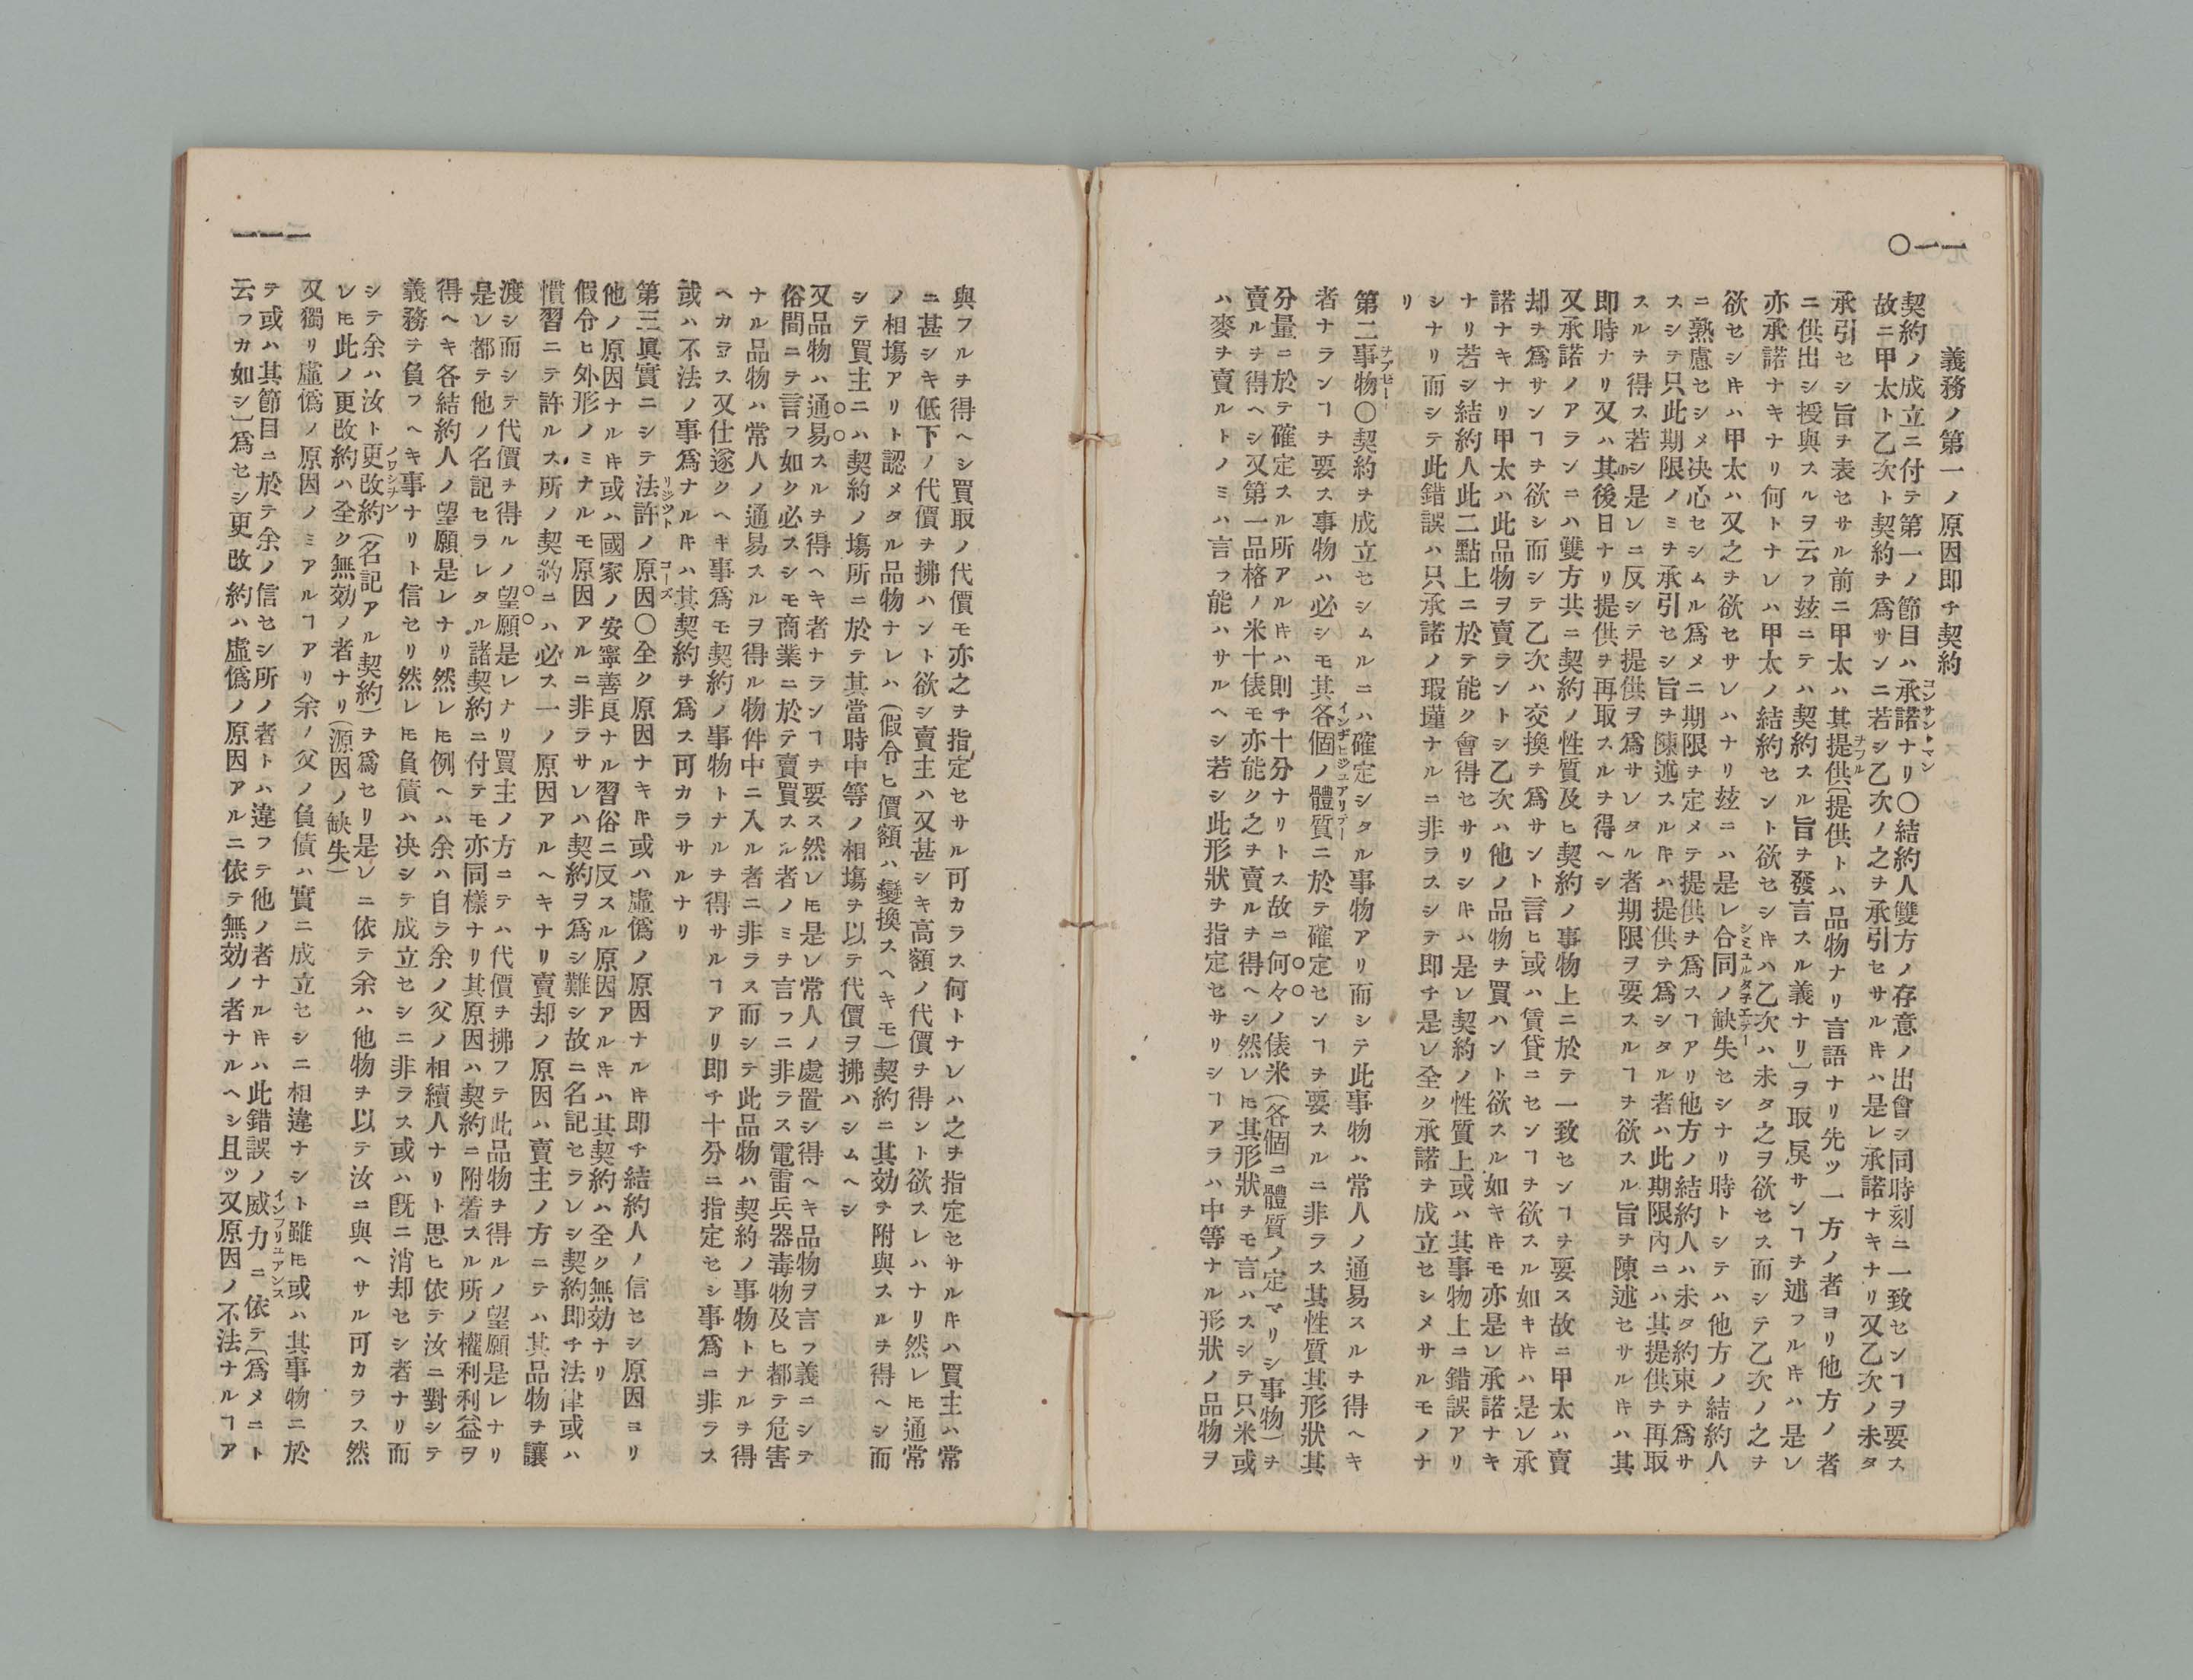 一一〇
義務ノ第一ノ原因即チ契約
契約ノ成立ニ付テ第一ノ節目ハ承諾ナリ〇結約人雙方ノ存意ノ出會シ同時刻ニ一致センヿヲ要ス
故ニ甲太ト乙次ト契約ヲ爲サンニ若シ乙次ノ之ヲ承引セサルキハ是レ承諾ナキナリ又乙次ノ未タ
承引セシ旨ヲ表セサル前ニ甲太ハ其提供〔提供トハ品物ナリ言語ナリ先ツ一方ノ者ヨリ他方ノ者
ニ供出シ授與スルヲ云フ玆ニテハ契約スル旨ヲ發言スル義ナリ〕ヲ取戾サンヿヲ述フルキハ是レ
亦承諾ナキナリ何トナレハ甲太ノ結約セント欲セシキハ乙次ハ未タ之ヲ欲セス而シテ乙次ノ之ヲ
欲セシキハ甲太ハ又之ヲ欲セサレハナリ玆ニハ是レ合同ノ缺失セシナリ時トシテハ他方ノ結約人
ニ熟慮セシメ決心セシムル爲メニ期限ヲ定メテ提供ヲ爲スヿアリ他方ノ結約人ハ未タ約束ヲ爲サ
スシテ只此期限ノミヲ承引セシ旨ヲ陳述スルキハ提供ヲ爲シタル者ハ此期限內ニハ其提供ヲ再取
スルヲ得ス若シ是レニ反シテ提供ヲ爲サレタル者期限ヲ要スルヿヲ欲スル旨ヲ陳述セサルキハ其
即時ナリ又ハ其後日ナリ提供ヲ再取スルヲ得ヘシ
又承諾ノアランニハ雙方共ニ契約ノ性質及ヒ契約ノ事物上ニ於テ一致センヿヲ要ス故ニ甲太ハ賣
却ヲ爲サンヿヲ欲シ而シテ乙次ハ交換ヲ爲サント言ヒ或ハ賃貸ニセンヿヲ欲スル如キキハ是レ承
諾ナキナリ甲太ハ此品物ヲ賣ラントシ乙次ハ他ノ品物ヲ買ハント欲スル如キキモ亦是レ承諾ナキ
ナリ若シ結約人此二點上ニ於テ能ク會得セサリシキハ是レ契約ノ性質上或ハ其事物上ニ錯誤アリ
シナリ而シテ此錯誤ハ只承諾ノ瑕瑾ナルニ非ラスシテ即チ是レ全ク承諾ヲ成立セシメサルモノナ
リ
第二事物〇契約ヲ成立セシムルニハ確定シタル事物アリ而シテ此事物ハ常人ノ通易スルヲ得ヘキ
者ナランヿヲ要ス事物ハ必シモ其各個ノ體質ニ於テ確定センヿヲ要スルニ非ラス其性質其形狀其
分量ニ於テ確定スル所アルキハ則チ十分ナリトス故ニ何々ノ俵米(各個ニ體質ノ定マリシ事物)ヲ
賣ルヲ得ヘシ又第一品格ノ米十俵モ亦能ク之ヲ賣ルヲ得ヘシ然レ𪜈其形狀ヲモ言ハスシテ只米或
ハ麥ヲ賣ルトノミハ言フ能ハサルヘシ若シ此形狀ヲ指定セサリシヿアラハ中等ナル形狀ノ品物ヲ
一一一
與フルヲ得ヘシ買取ノ代價モ亦之ヲ指定セサル可カラス何トナレハ之ヲ指定セサルキハ買主ハ常
ニ甚シキ低下ノ代價ヲ拂ハント欲シ賣主ハ又甚シキ高額ノ代價ヲ得ント欲スレハナリ然レ𪜈通常
ノ相塲アリト認メタル品物ナレハ(假令ヒ價額ハ變換スヘキモ)契約ニ其効ヲ附與スルヲ得ヘシ而
シテ買主ニハ契約ノ塲所ニ於テ其當時中等ノ相塲ヲ以テ代價ヲ拂ハシムヘシ
又品物ハ通易スルヲ得ヘキ者ナランヿヲ要ス然レ𪜈是レ常人ノ處置シ得ヘキ品物ヲ言フ義ニシテ
俗間ニテ言フ如ク必スシモ商業ニ於テ賣買スル者ノミヲ言フニ非ラス電雷兵器毒物及ヒ都テ危害
ナル品物ハ常人ノ通易スルヲ得ル物件中ニ入ル者ニ非ラス而シテ此品物ハ契約ノ事物トナルヲ得
ヘカラス又仕遂クヘキ事爲モ契約ノ事物トナルヲ得サルヿアリ即チ十分ニ指定セシ事爲ニ非ラス
或ハ不法ノ事爲ナルキハ其契約ヲ爲ス可カラサルナリ
第三眞實ニシテ法許ノ原因〇全ク原因ナキキ或ハ虛僞ノ原因ナルキ即チ結約人ノ信セシ原因ヨリ
他ノ原因ナルキ或ハ國家ノ安寧善良ナル習俗ニ反スル原因アルキハ其契約ハ全ク無効ナリ
假令ヒ外形ノミナルモ原因アルニ非ラサレハ契約ヲ爲シ難シ故ニ名記セラレシ契約即チ法津或ハ
慣習ニテ許ルス所ノ契約ニハ必ス一ノ原因アルヘキナリ賣却ノ原因ハ賣主ノ方ニテハ其品物ヲ讓
渡シ而シテ代價ヲ得ルノ望願是レナリ買主ノ方ニテハ代價ヲ拂フテ此品物ヲ得ルノ望願是レナリ
是レ都テ他ノ名記セラレタル諸契約ニ付テモ亦同樣ナリ其原因ハ契約ニ附着スル所ノ權利利益ヲ
得ヘキ各結約人ノ望願是レナリ然レ𪜈例ヘハ余ハ自ラ余ノ父ノ相續人ナリト思ヒ依テ汝ニ對シテ
義務ヲ負フヘキ事ナリト信セリ然レ𪜈負債ハ決シテ成立セシニ非ラス或ハ旣ニ消却セシ者ナリ而
シテ余ハ汝ト更改約(名記アル契約)ヲ爲セリ是レニ依テ余ハ他物ヲ以テ汝ニ與ヘサル可カラス然
レ𪜈此ノ更改約ハ全ク無効ノ者ナリ(源因ノ缺失)
又獨リ虛僞ノ原因ノミアルヿアリ余ノ父ノ負債ハ實ニ成立セシニ相違ナシト雖𪜈或ハ其事物ニ於
テ或ハ其節目ニ於テ余ノ信セシ所ノ者トハ違フテ他ノ者ナルキハ此錯誤ノ威力ニ依テ〔爲メニト
云フカ如シ〕爲セシ更改約ハ虛僞ノ原因アルニ依テ無効ノ者ナルヘシ且ツ又原因ノ不法ナルヿア